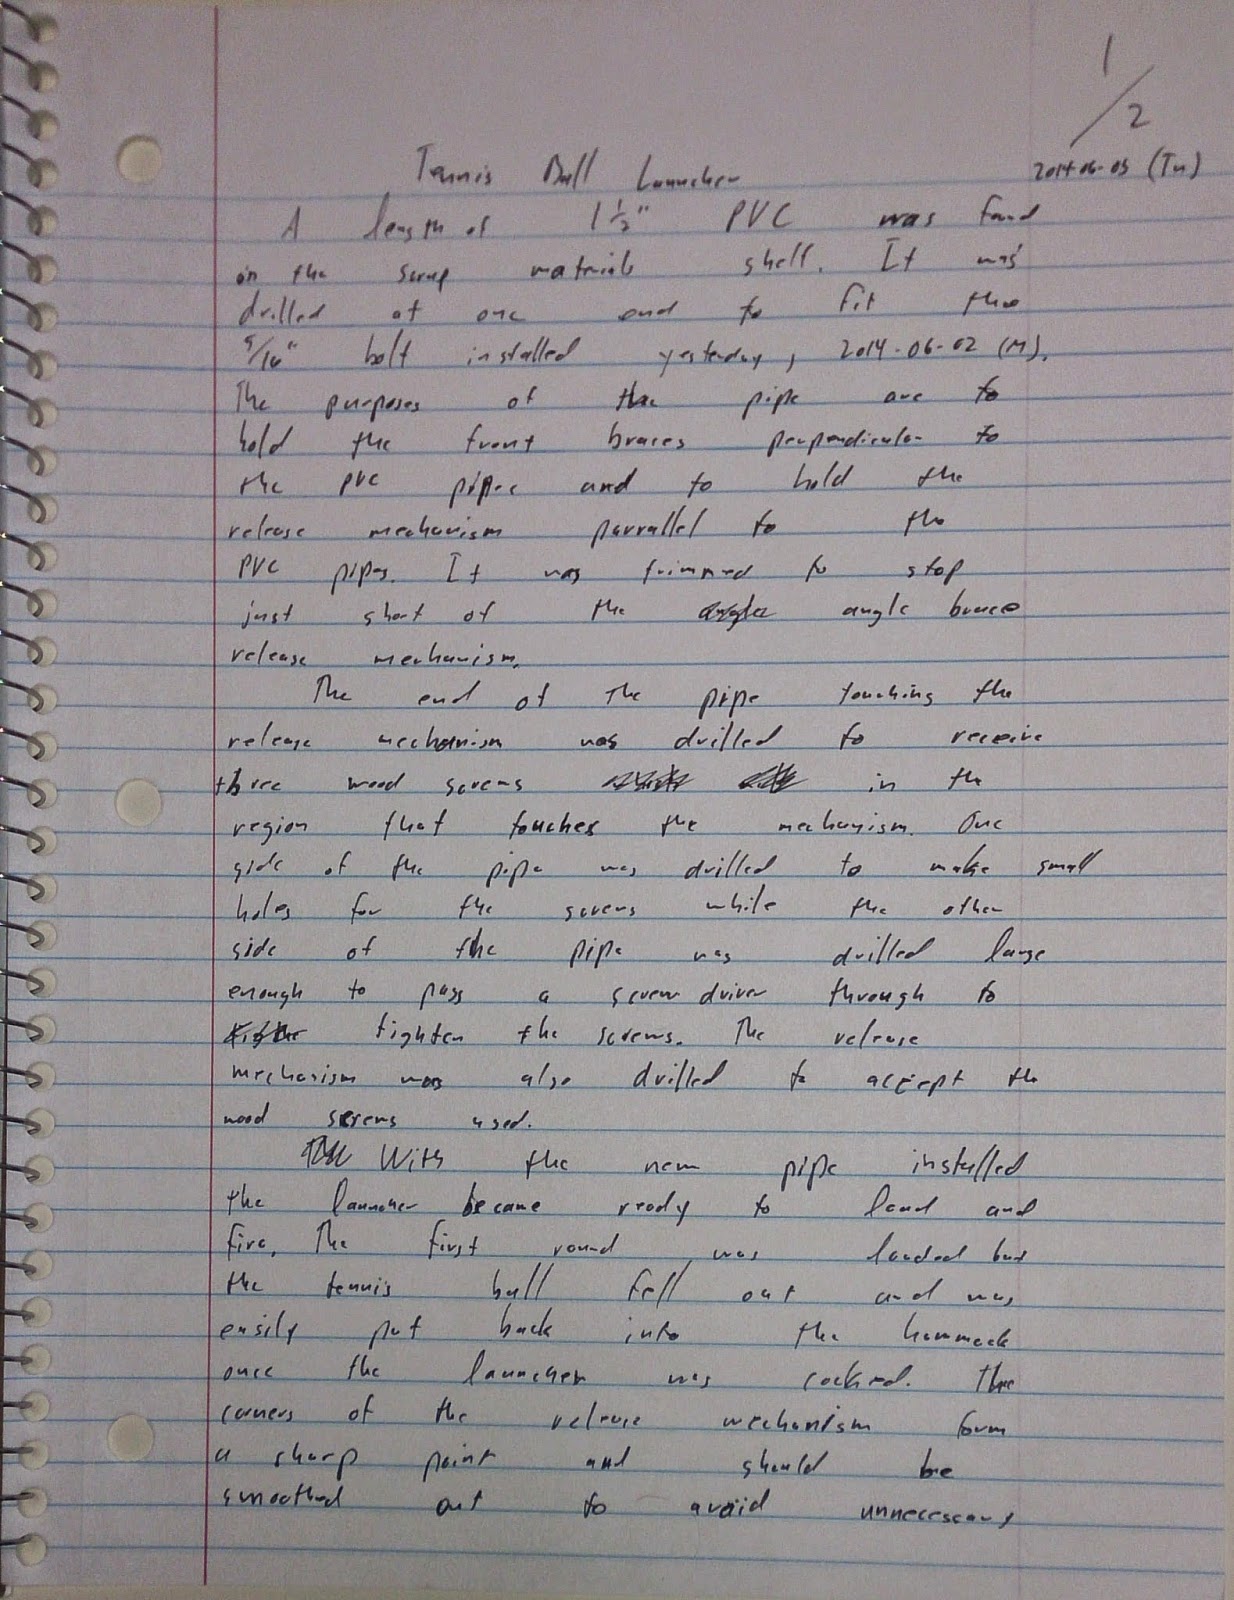 1/2
Tennis Ball Launcher 2014-06-03 (Tu)
A length of 1 1/2" PVC was found
in the scrap materials shelf. It was
drilled at one end to fit the
5/16" bolt installed yesterday, 2014-06-02 (M).
The purposes of the pipe are to
hold the front braces perpendicular to
the PVC pipes and to hold the
release mechanism parrallel to the
PVC pipes. It was trimmed to stop
just short of the angle brace
release mechanism.
The end of the pipe touching the
release mechanism was drilled to receive
three wood screws in the
region that touches the mechanism. One
side of the pipe was drilled to make small
holes for the screws while the other
side of the pipe was drilled large
enough to pass a screw driver through to
tighten the screws. The release
mechanism was also drilled to accept the
wood screws used.
With the new pipe installed
the launcher became ready to load and
fire. The first round was loaded but
the tennis ball fell out and was
easily put back into the hammock
once the launcher was cocked. The
corners of the release mechanism form
a sharp point and should be
smoothed out to avoid unnecessary